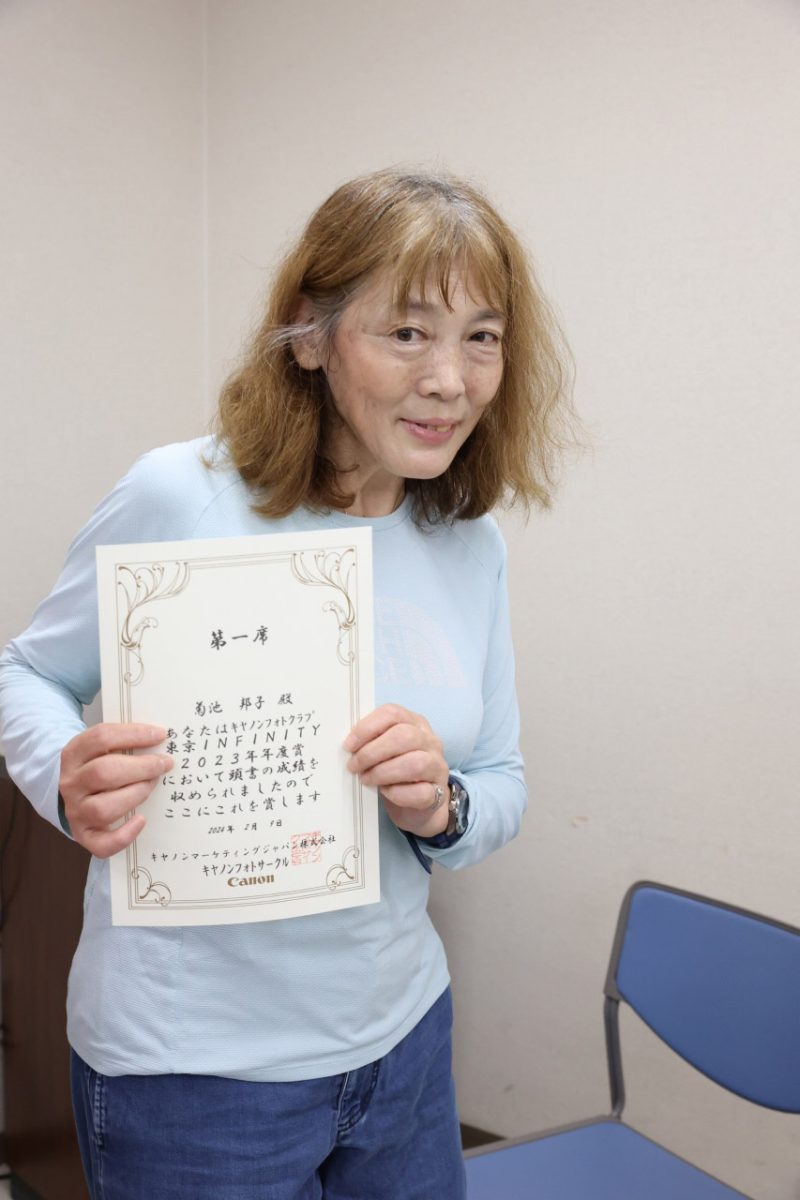 第一席
菊池 邦子 殿
あなたはキヤノンフォトクラブ
東京INFINITY
2023年年度賞
において頭書の成績を
収められましたので
ここにこれを賞します
2024年 2月 9日
キヤノンマーケティングジャパン株式会社
キヤノンフォトサークル
Canon